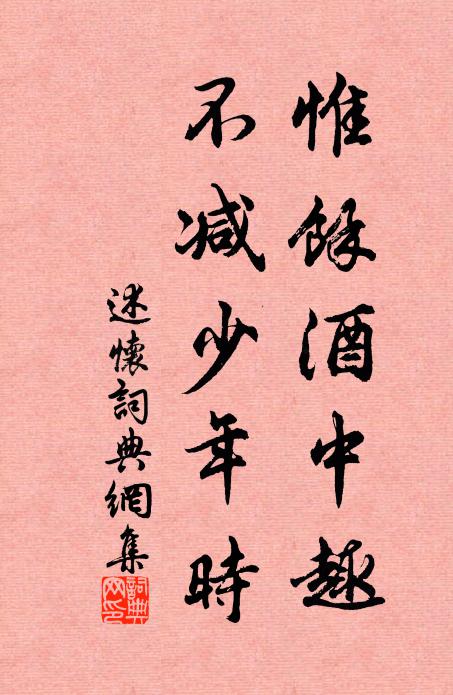 惟餘酒中趣
不減少年時
述懷詞典網集
詞典
网印